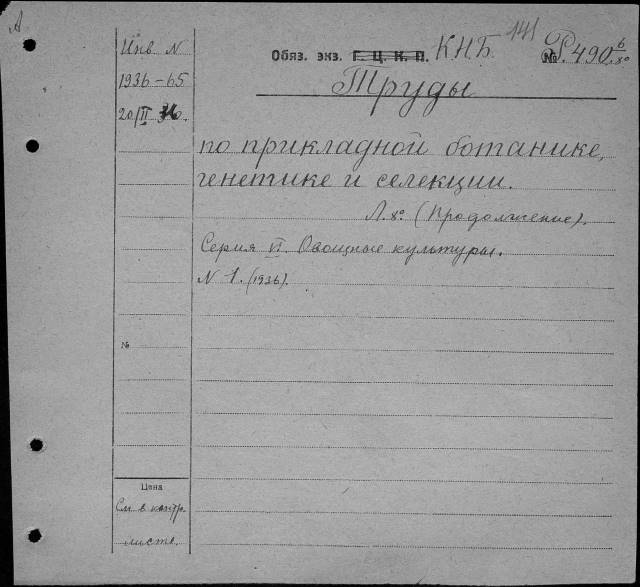 А
Инв N
1936-65
20/II
Обяз. экз. Г. Ц. К. П. КНБ. 141 № Р490 6/8°
Труды
по прикладной ботанике,
генетике и селекции.
Л. 8° (Продолжение).
Серия VI. Овощные культуры.
N 1. (1936).
№
Цена
См. в контр.
листе.